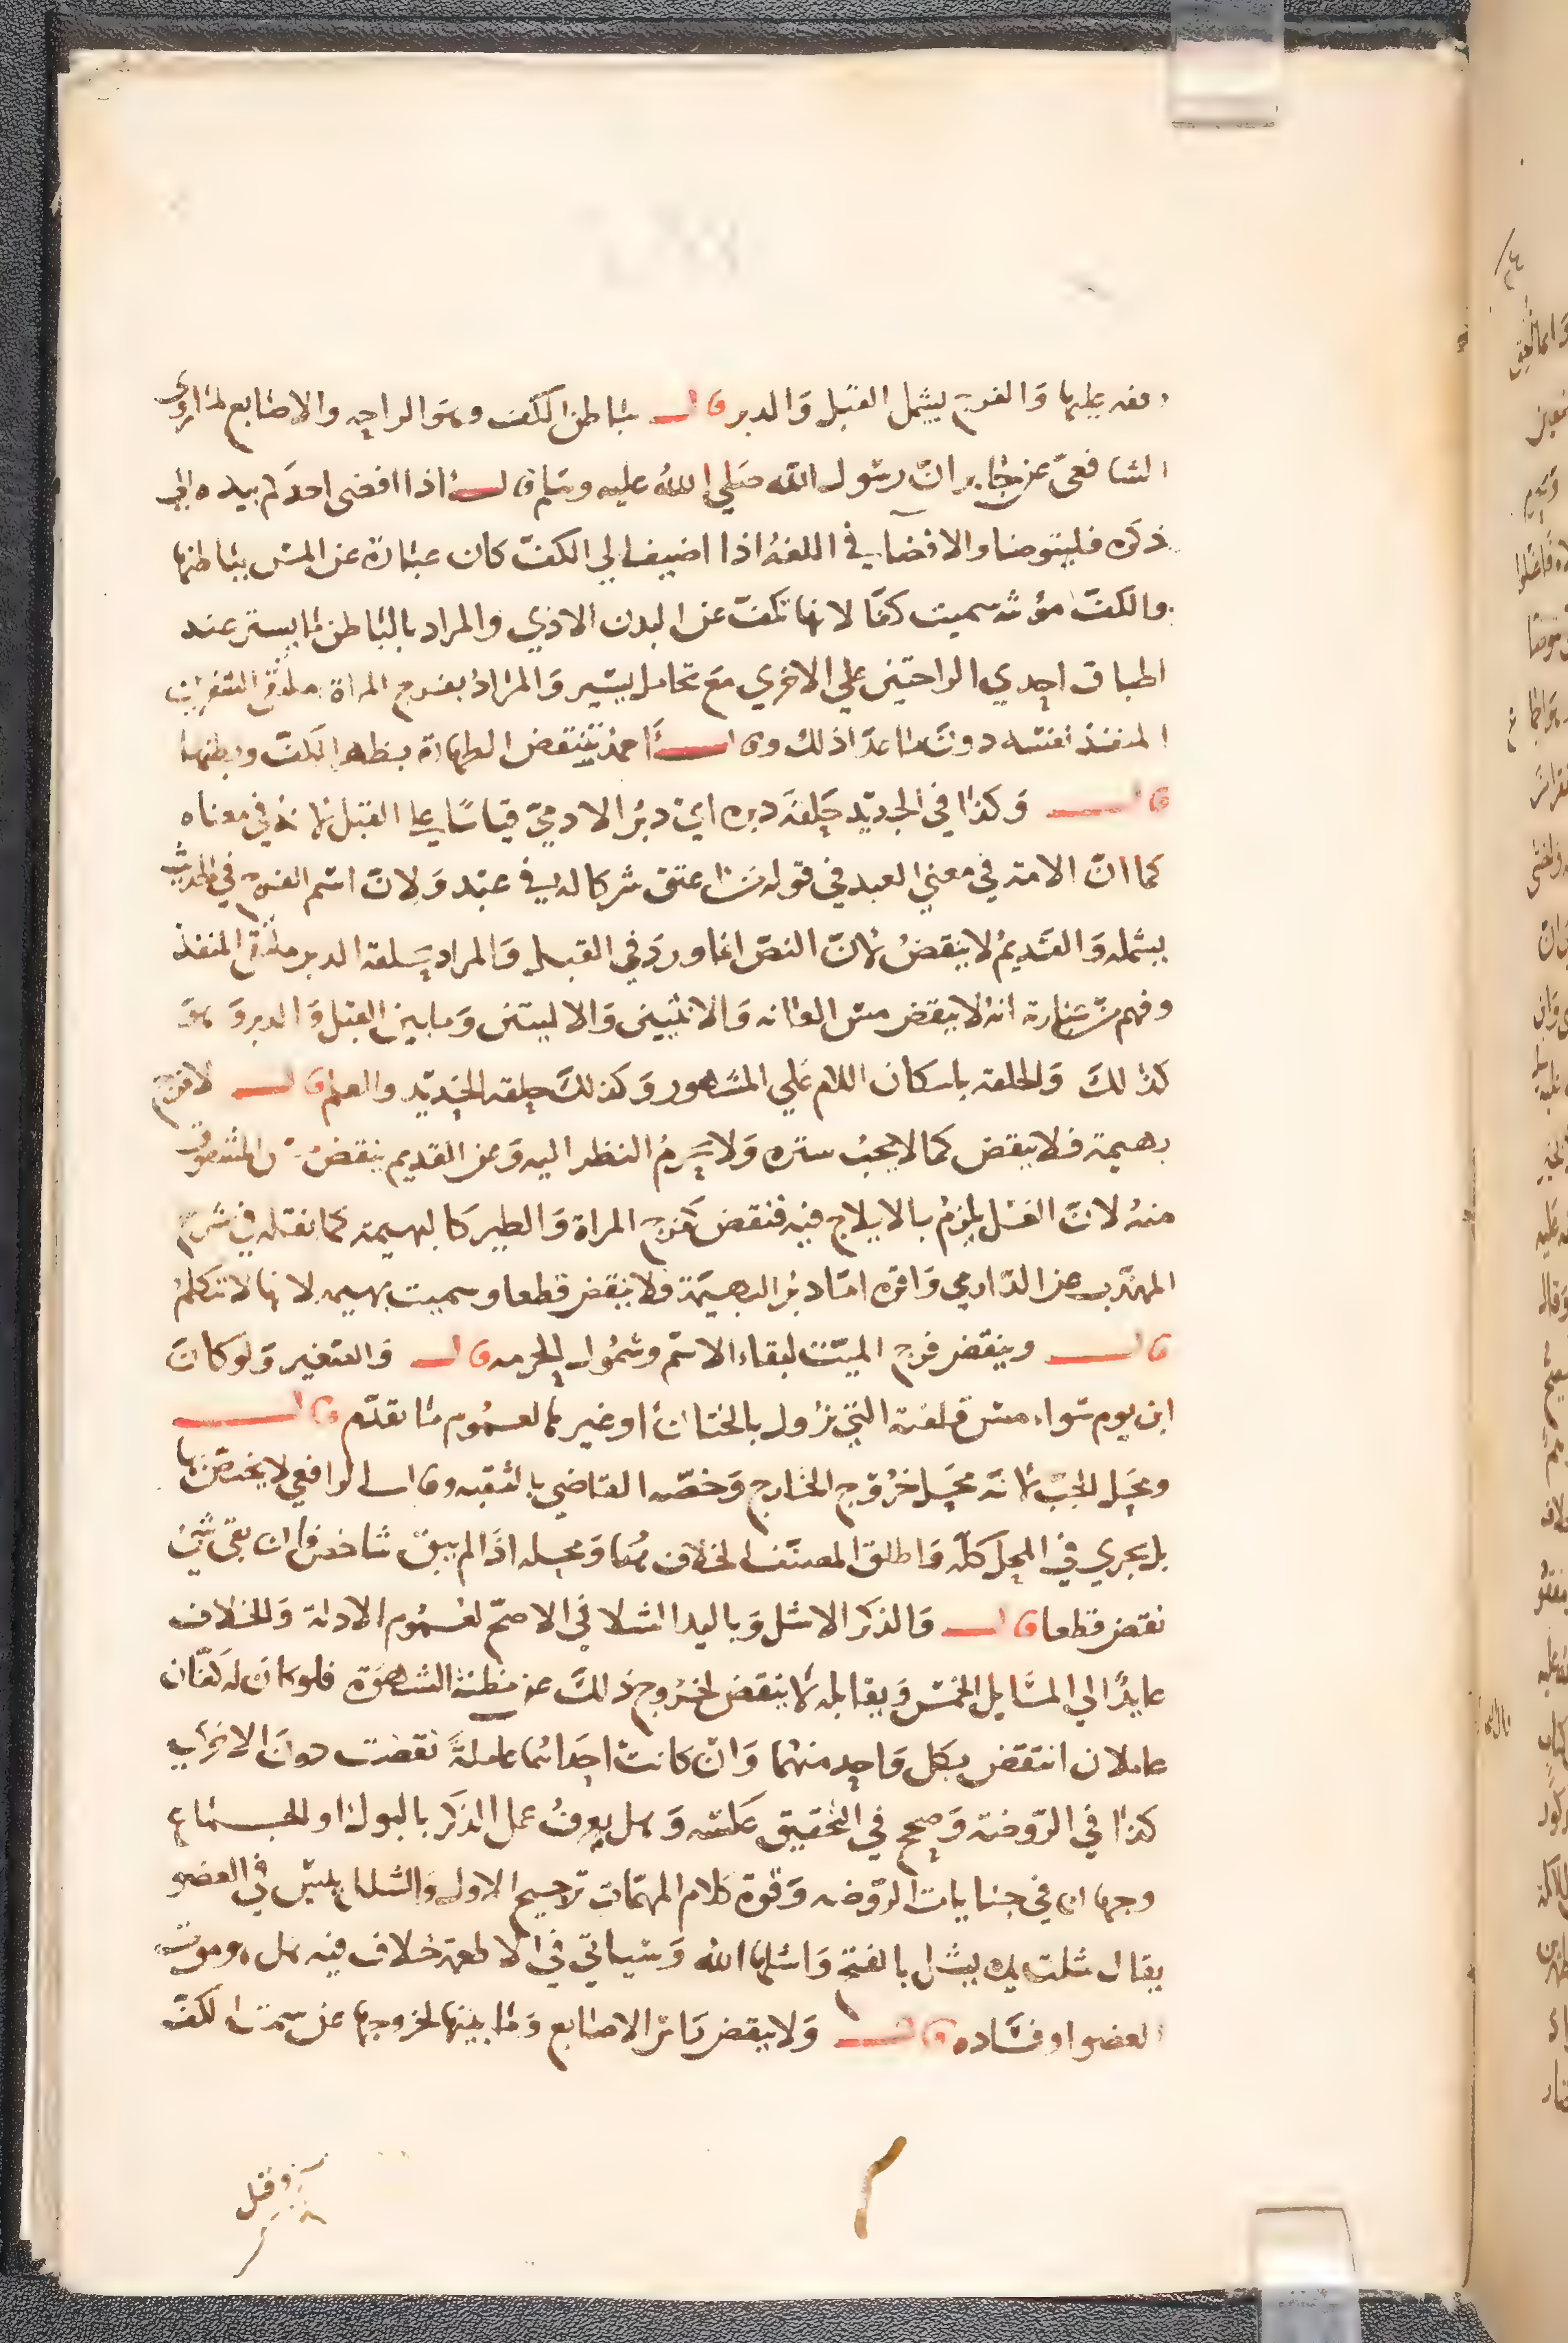 وقفه عليها والفرج يشمل القبل والدبر قال بباطن الكف وهو الراحه والاصابع لما روى
الشافعي عن جابر ان رسول الله صلي الله عليه وسلم قال اذا افضى احدكم بيده الي
ذكره فليتوضا والافضا في اللغة اذا اضيف الي الكف كان عبارة عن المس بباطنها
والكف مؤنثه سميت كفا لانها تكف عن البدن الاذي والمراد بالباطن ما يستتر عند
اطباق احدي الراحتين علي الاخري مع تحامل يسير والمراد بفرج المراة ملتقي الشفرين
المنفذ نفسه دون ما عدا ذلك وقال احمد تنتقض الطهارة بظهر الكف وبطنها
قال وكذا في الجديد حلقة دبره اي دبر الادمي قياسا علي القبل لانه في معناه
كما ان الامة في معني العبد في قوله من اعتق شركا له في عبد ولان اسم الفرج في الحديث
يشمله والقديم لا ينقض لان النص انما ورد في القبل والمراد بحلقة الدبر ملتقي المنفذ
وفهم من عبارته انه لا ينقض مس العانه والانثيين والاليتين وما بين القبل والدبر وهو
كذلك والحلقة باسكان اللام علي المشهور وكذلك حلقة الحديد والعلم قال لا فرج
بهيمة فلا ينقض كما لا يجب ستره ولا يحرم النظر اليه وعن القديم ينقض المشقوق
منه لان الغسل يلزم بالايلاج فيه فنقض كفرج المراة والطير كالبهيمة كما نقله في شرح
المهذب عن الدارمي واقره اما دبر البهيمة فلا ينقض قطعا وسميت بهيمه لانها لا تتكلم
قال وينقض فرج الميت لبقاء الاسم وشمول الحرمه قال والصغير ولو كان
ابن يوم سواء مس قلفته التي تزول بالختان او غيرها لعموم ما تقدم قال
ومحل الجب لانه محل خروج الخارج وخصه القاضي بالثقبه وقال الرافعي لا يختص بها
بل يجري في المحل كله واطلق المصنف الخلاف هنا ومحله اذا لم يبق شاخص فان بقي شي
نقض قطعا قال والذكر الاشل وباليد الشلا في الاصح لعموم الادلة والخلاف
عايد الي المسايل الخمس ويقابله لا ينقض لخروج ذلك عن مظنة الشهوة فلو كان له كفان
عاملان انتقض بكل واحد منهما وان كانت احداهما عاملة نقضت دون الاخرى
كذا في الروضة وصحح في التحقيق عكسه وهل يعرف عمل الذكر بالبول او الجماع
وجهان في جنايات الروضه وقوة كلام المهمات ترجيح الاول والشلل يبس في العضو
يقال شلت يده يشل بالفتح واشلها الله وسياتي في الاطعمة خلاف فيه هل هو موت
العضو او فساده قال ولا ينقض راس الاصابع وما بينها لخروجها عن سمت الكف
وقيل